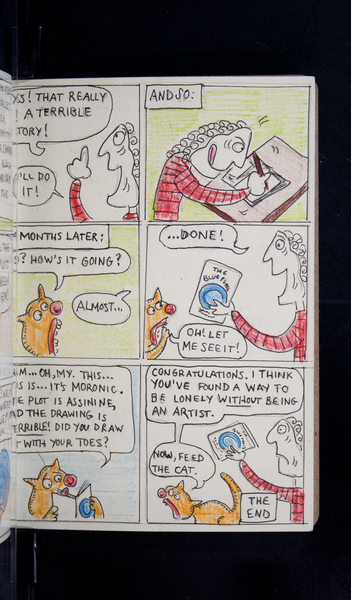 ! THAT REALLY
A TERRIBLE
TORY!
I'LL DO
IT!
AND SO:
MONTHS LATER:
? HOW'S IT GOING?
ALMOST...
...DONE!
THE
BLUE
OH! LET
ME SEE IT!
...OH, MY. THIS...
IS... IT'S MORONIC.
PLOT IS ASININE,
THE DRAWING IS
RRIBLE! DID YOU DRAW
WITH YOUR TOES?
CONGRATULATIONS. I THINK
YOU'VE FOUND A WAY TO
BE LONELY WITHOUT BEING
AN ARTIST.
NOW, FEED
THE CAT.
THE
END